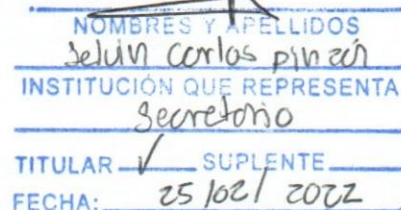 NOMBRES Y APELLIDOS
Selvin Carlos Pinzón
INSTITUCIÓN QUE REPRESENTA
Secretorio
TITULAR ✓ SUPLENTE
FECHA: 25/02/2022